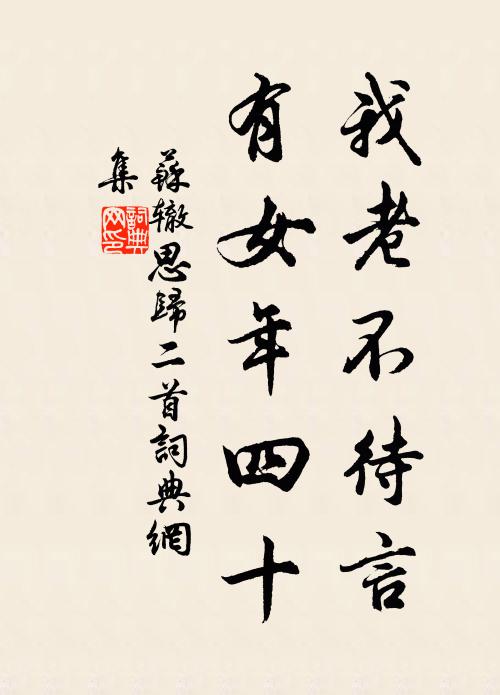 我老不待言
有女年四十
蘇辙思歸二首詞典網
集
詞典網印